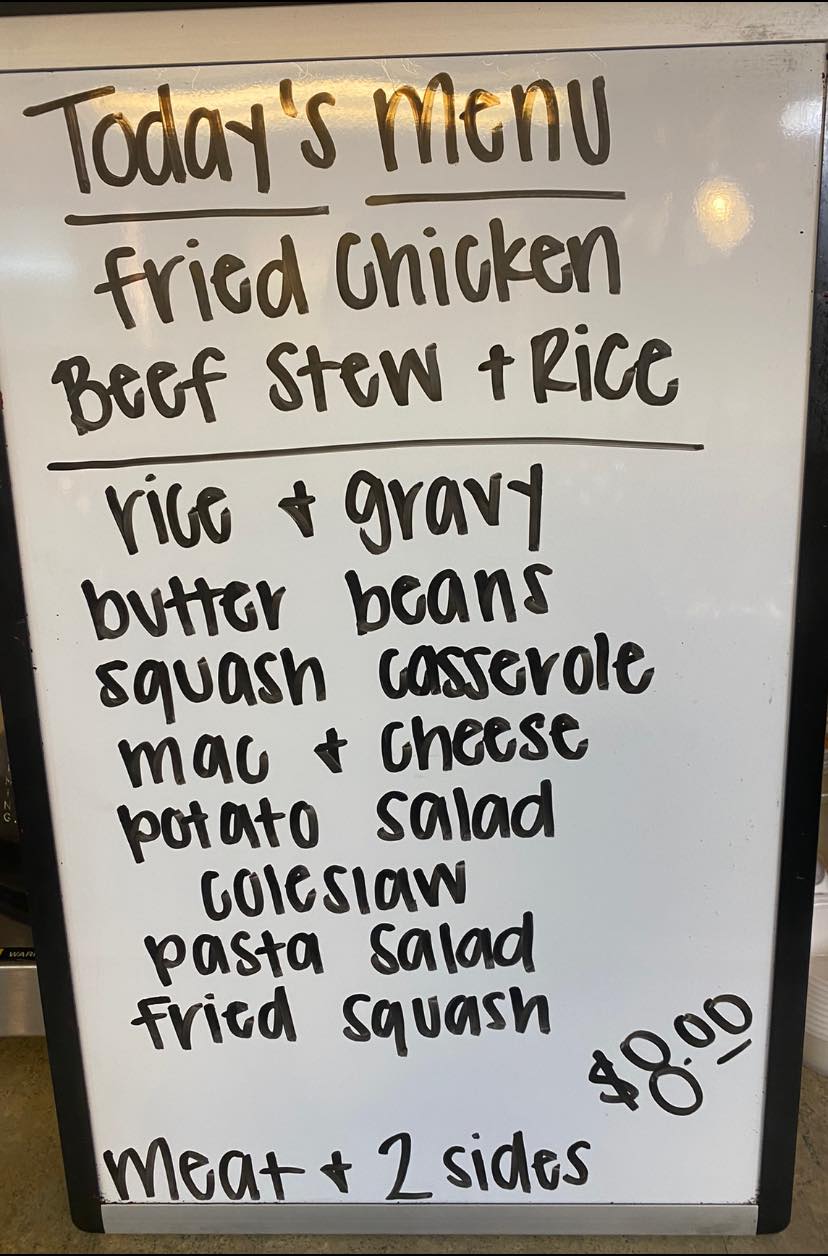 Today's Menu
fried Chicken
Beef Stew + Rice
rice + gravy
butter beans
squash casserole
mac + cheese
potato salad
coleslaw
pasta salad
fried squash
$8.00
Meat + 2 sides